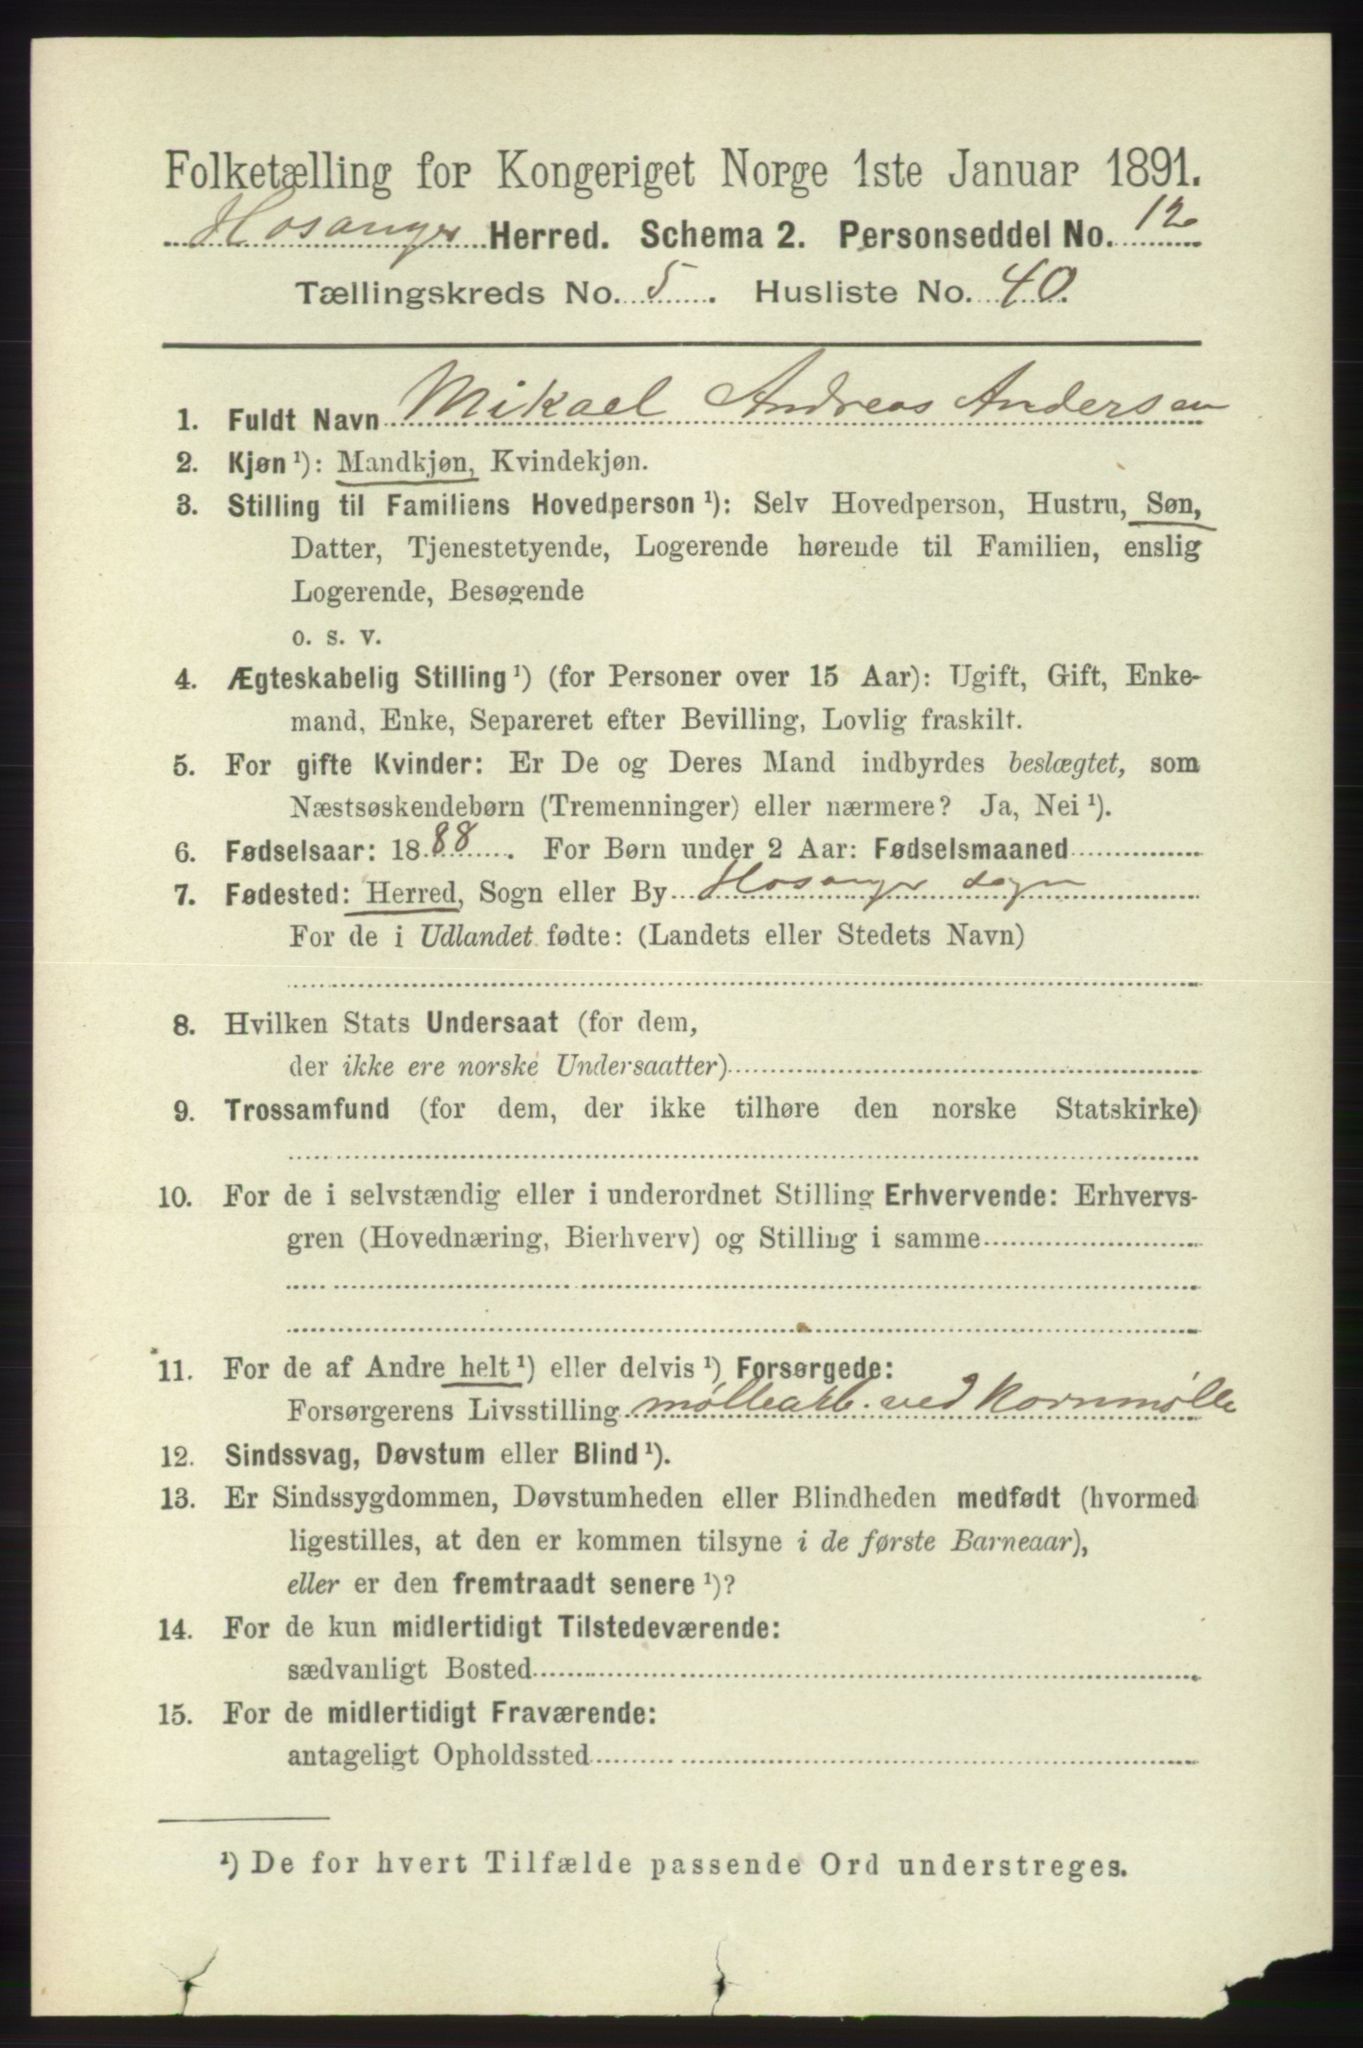 Folketælling for Kongeriget Norge 1ste Januar 1891.
Hosanger Herred. Schema 2. Personseddel No. 12
Tællingskreds No. 5. Husliste No. 40.
1. Fuldt Navn Mikael Andreas Andersen
2. Kjøn ¹): Mandkjøn, Kvindekjøn.
3. Stilling til Familiens Hovedperson ¹): Selv Hovedperson, Hustru, Søn,
Datter, Tjenestetyende, Logerende hørende til Familien, enslig
Logerende, Besøgende
o. s. v.
4. Ægteskabelig Stilling ¹) (for Personer over 15 Aar): Ugift, Gift, Enke-
mand, Enke, Separeret efter Bevilling, Lovlig fraskilt.
5. For gifte Kvinder: Er De og Deres Mand indbyrdes beslægtet, som
Næstsøskendebørn (Tremenninger) eller nærmere? Ja, Nei ¹).
6. Fødselsaar: 1888. For Børn under 2 Aar: Fødselsmaaned
7. Fødested: Herred, Sogn eller By Hosanger sogn
For de i Udlandet fødte: (Landets eller Stedets Navn)
8. Hvilken Stats Undersaat (for dem,
der ikke ere norske Undersaatter)
9. Trossamfund (for dem, der ikke tilhøre den norske Statskirke)
10. For de i selvstændig eller i underordnet Stilling Erhvervende: Erhvervs-
gren (Hovednæring, Bierhverv) og Stilling i samme
11. For de af Andre helt ¹) eller delvis ¹) Forsørgede:
Forsørgerens Livsstilling møllearb. ved Kornmølle
12. Sindssvag, Døvstum eller Blind ¹).
13. Er Sindssygdommen, Døvstumheden eller Blindheden medfødt (hvormed
ligestilles, at den er kommen tilsyne i de første Barneaar),
eller er den fremtraadt senere ¹)?
14. For de kun midlertidigt Tilstedeværende:
sædvanligt Bosted
15. For de midlertidigt Fraværende:
antageligt Opholdssted
¹) De for hvert Tilfælde passende Ord understreges.